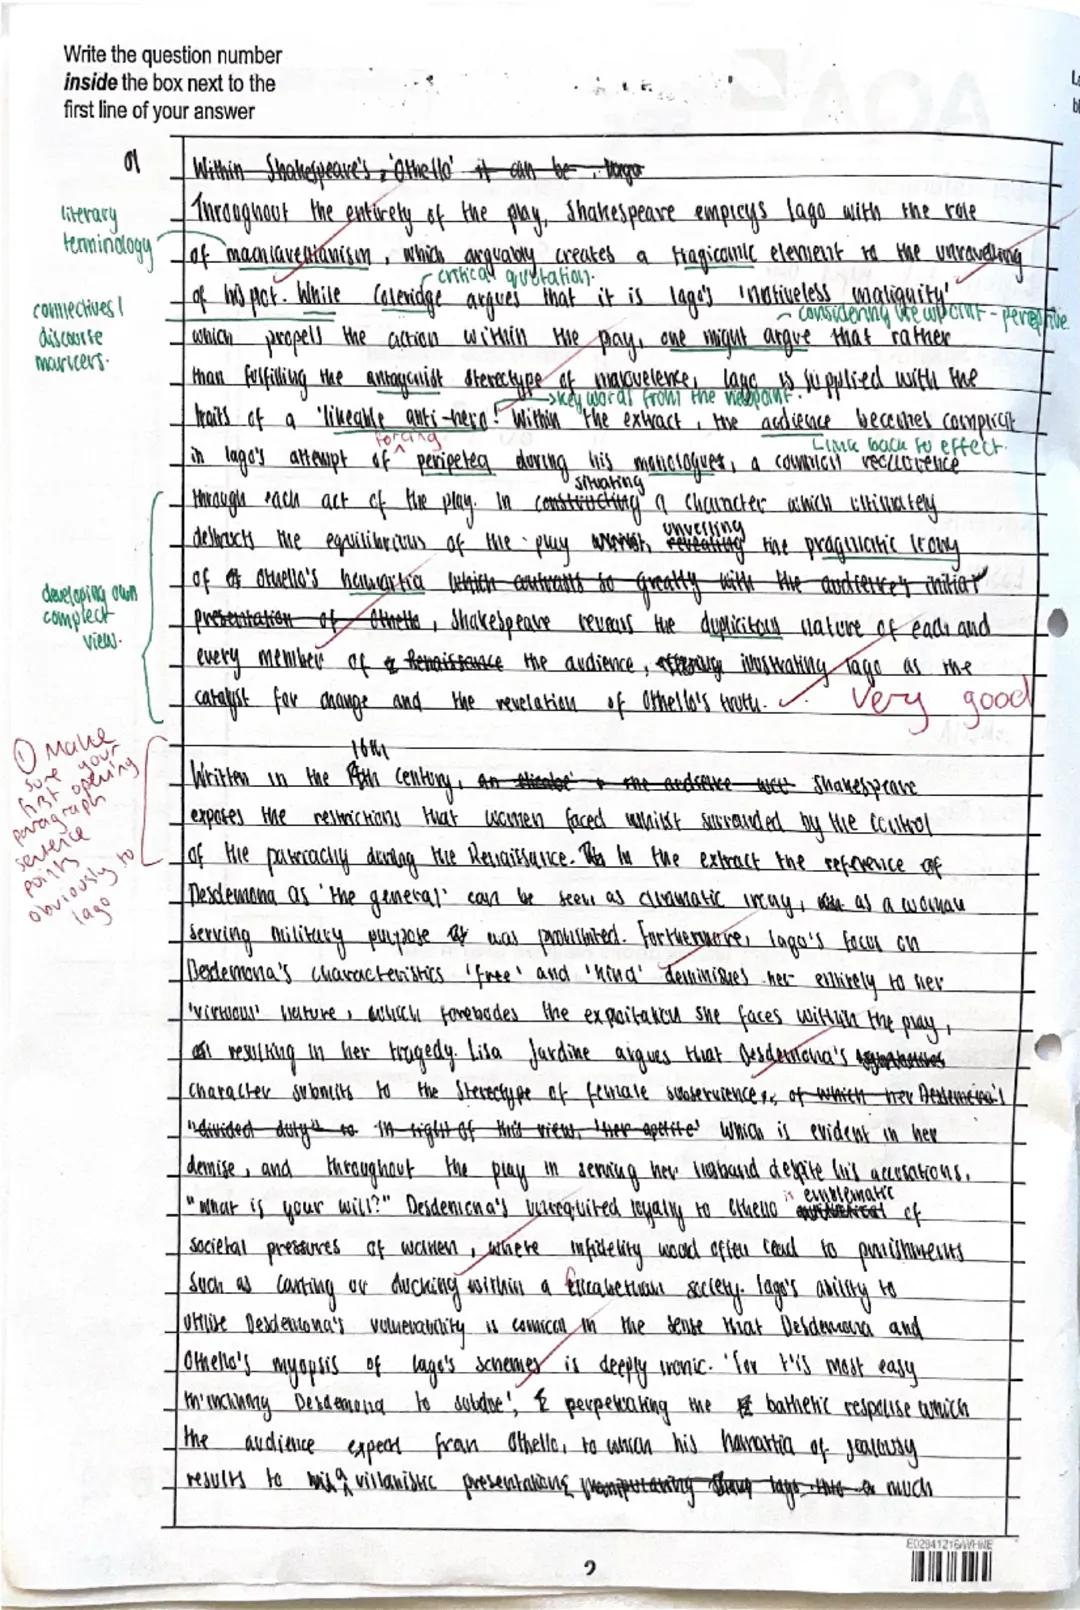 Write the question number
inside the box next to the
first line of your answer
01
Within Shakespeare's 'Othello' it can be
Throughout the entirety of the play, Shakespeare employs Iago with the role
literary
terminology
of machiavellianism, which arguably creates a tragicomic element to the unravelling
critical quotation.
of his plot. While Coleridge argues that it is Iago's 'motiveless maliguity'
connectives /
discourse
markers.
considering viewpoint - perceptive
which propells the action within the play, one might argue that rather
than fulfilling the antagonist stereotype of malevelence, Iago is supplied with the
key words from the viewpoint.
traits of a 'likeable anti-hero'. Within the extract, the audience becomes complicit
Link back to effect.
forcing
in Iago's attempt of peripetea during his monologues, a comical
situating
through each act of the play. In constructing a character which ultimately
unveiling
destructs the equilibrious of the play revealing the pragmatic irony
of Othello's hamartia which contrasts so greatly with the audience's initial
developing own
complect
view.
presentation of Othello, Shakespeare reveals the duplicitous nature of each and
every member of Renaissance the audience, illustrating Iago as the
catalyst for change and the revelation of Othello's truth.
Very good
① Make
sure your
first opening
paragraph
sentence
points
obviously to
Iago
16th
Written in the century, the audience Shakespeare
exposes the restrictions that women faced whilst surrounded by the control
of the patriarchy during the Renaissance. In the extract the reference of
Desdemona as 'the general' can be seen as dramatic irony, as a woman
serving military purpose was prohibited. Furthermore, Iago's focus on
Desdemona's characteristics 'free' and 'kind' deminishes her entirely to her
'virtuous' nature, which forebodes the expoitation she faces within the play,
resulting in her tragedy. Lisa Jardine argues that Desdemona's
character submits to the stereotype of female subservience, of which her Desdemona's
"divided duty" to In light of this view, 'her apetite' which is evident in her
demise, and throughout the play in serving her husband despite his accusations.
is emblematic
"What is your will?" Desdemona's unrequited loyalty to Othello of
societal pressures of women, where infidelity would often lead to punishments
such as carting or ducking within a Elizabethan society. Iago's ability to
utilise Desdemona's vulnerability is comical in the sense that Desdemona and
Othello's myopsis of Iago's schemes is deeply ironic. 'For t'is most easy
th'inclining Desdemona to subdue', perpetrating the bathetic response which
the audience expect from Othello, to which his hamartia of jealousy
results to a villanistic presentation, much
2